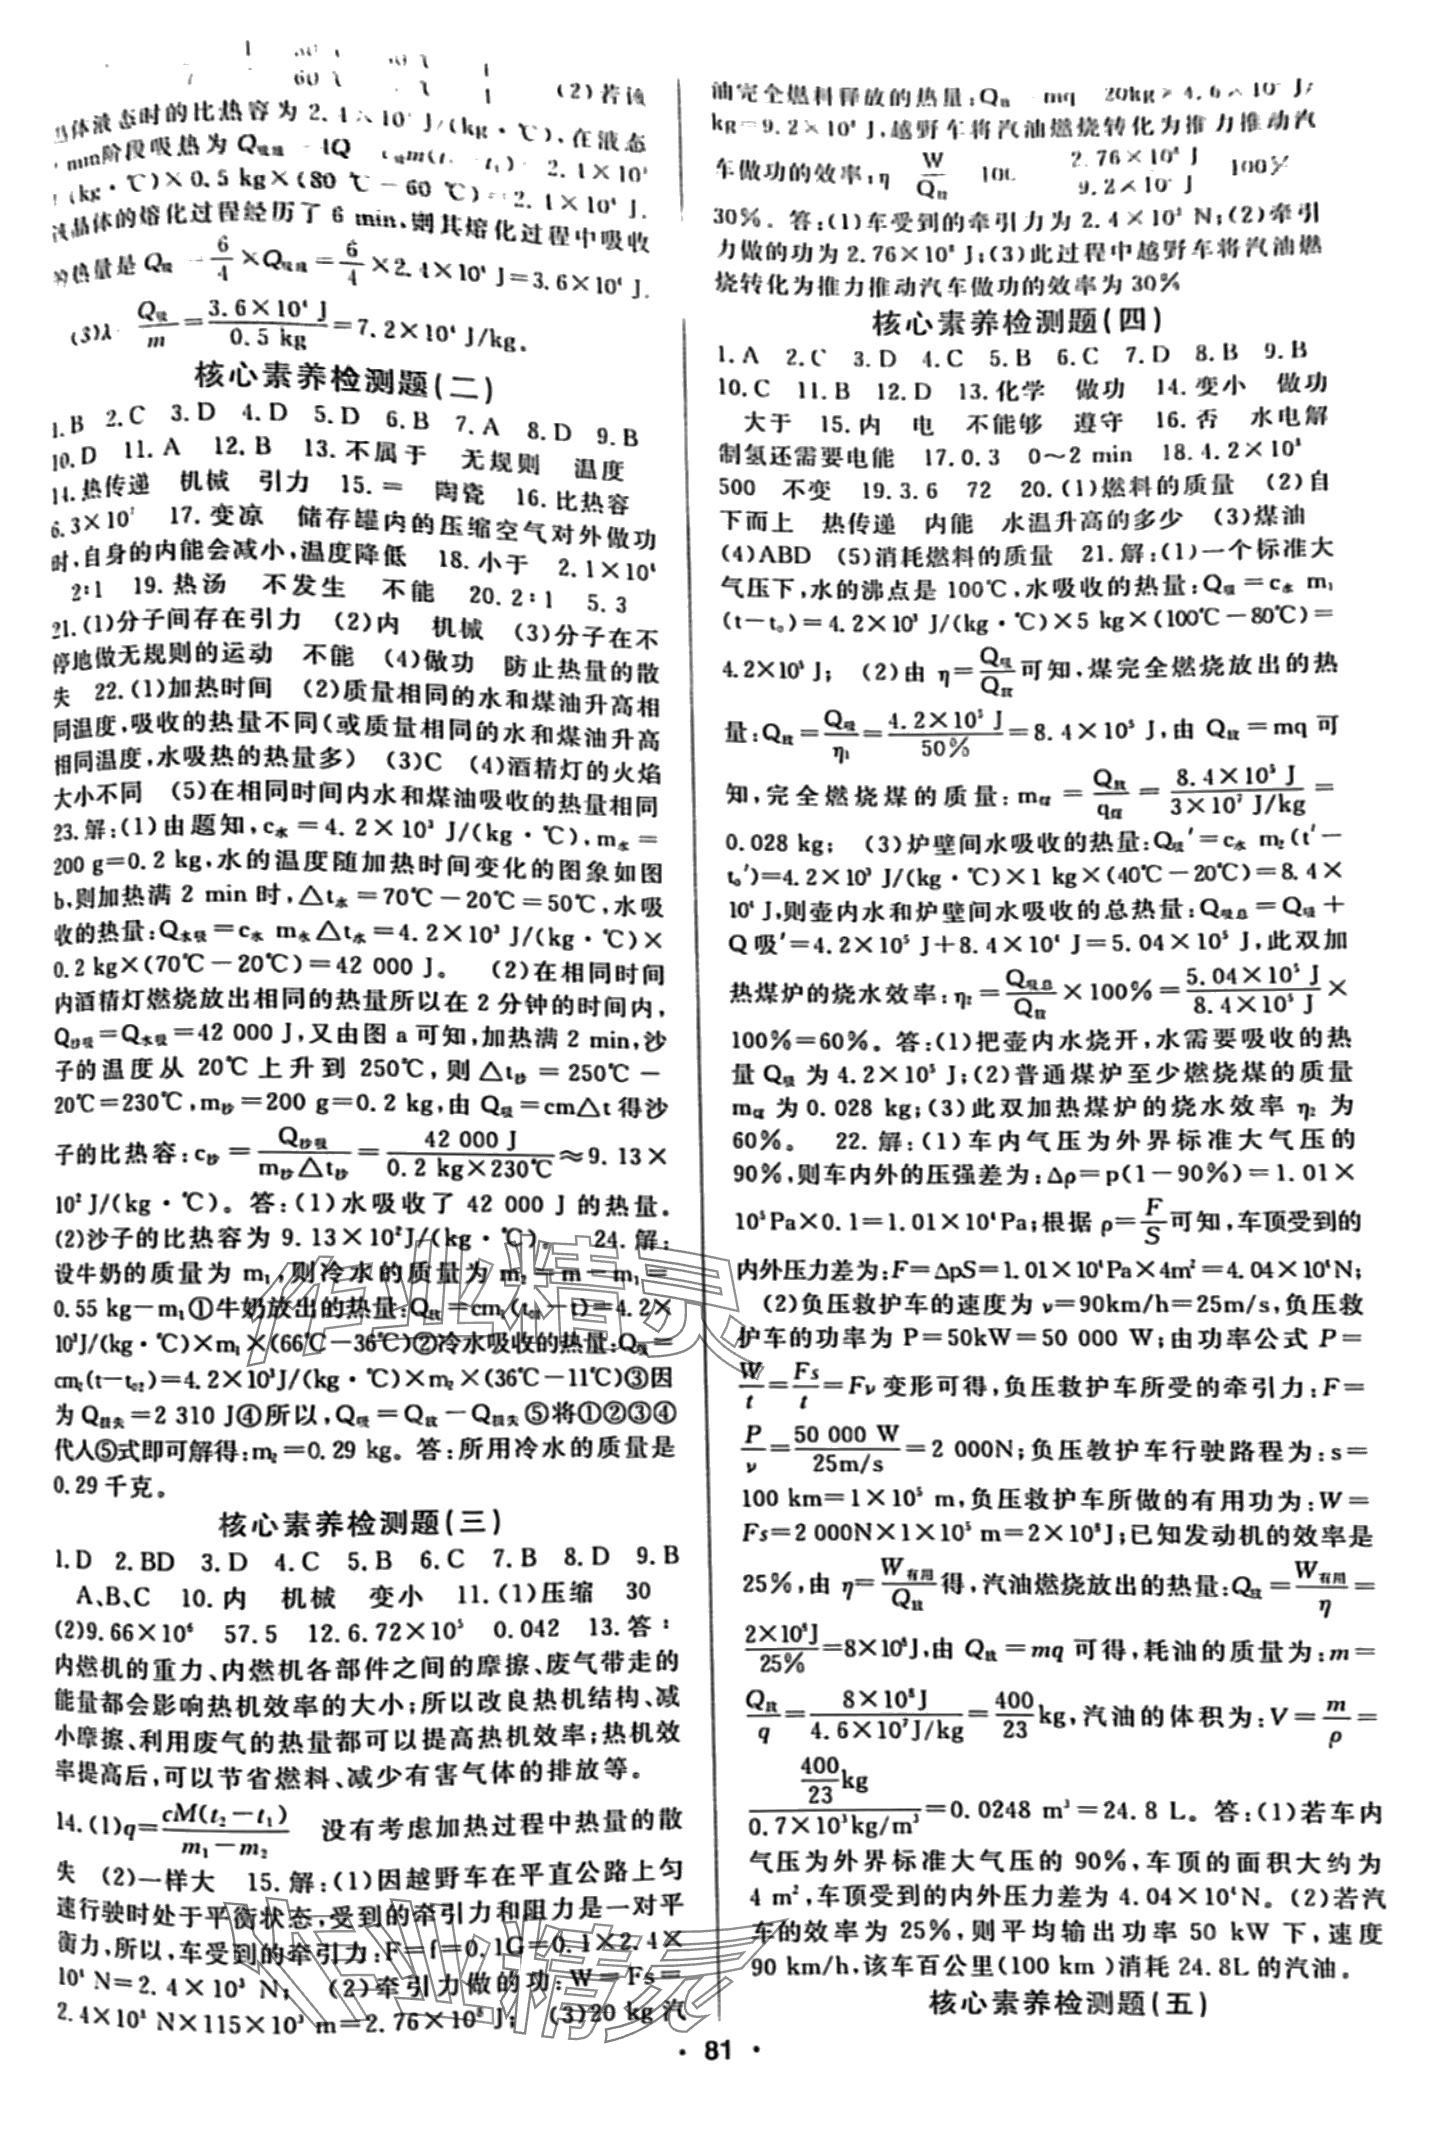 60
(2)若该
晶体液态时的比热容为 2.4×10³ J/(kg·℃),在液态
min阶段吸热为 Q
(kg·℃)×0.5 kg×(80℃-60℃)=2.4×10⁴ J.
该晶体的熔化过程经历了 6 min,则其熔化过程中吸收
的热量是 Q吸=6/4×Q吸液=6/4×2.4×10⁴ J=3.6×10⁴ J.
(3)λ=Q吸/m=3.6×10⁴ J/0.5 kg=7.2×10⁴ J/kg。
核心素养检测题(二)
1.B 2.C 3.D 4.D 5.D 6.B 7.A 8.D 9.B
10.D 11.A 12.B 13.不属于 无规则 温度
14.热传递 机械 引力 15.= 陶瓷 16.比热容
6.3×10⁷ 17.变凉 储存罐内的压缩空气对外做功
时,自身的内能会减小,温度降低 18.小于 2.1×10⁴
2:1 19.热汤 不发生 不能 20.2:1 5.3
21.(1)分子间存在引力 (2)内 机械 (3)分子在不
停地做无规则的运动 不能 (4)做功 防止热量的散
失 22.(1)加热时间 (2)质量相同的水和煤油升高相
同温度,吸收的热量不同(或质量相同的水和煤油升高
相同温度,水吸热的热量多) (3)C (4)酒精灯的火焰
大小不同 (5)在相同时间内水和煤油吸收的热量相同
23.解:(1)由题知,c水=4.2×10³ J/(kg·℃),m水=
200 g=0.2 kg,水的温度随加热时间变化的图象如图
b,则加热满 2 min 时,△t水=70℃-20℃=50℃,水吸
收的热量:Q水吸=c水 m水△t水=4.2×10³ J/(kg·℃)×
0.2 kg×(70℃-20℃)=42 000 J。 (2)在相同时间
内酒精灯燃烧放出相同的热量所以在 2 分钟的时间内,
Q沙吸=Q水吸=42 000 J,又由图 a 可知,加热满 2 min,沙
子的温度从 20℃上升到 250℃,则 △t沙=250℃-
20℃=230℃,m沙=200 g=0.2 kg,由 Q吸=cm△t 得沙
子的比热容:c沙=Q沙吸/m沙△t沙=42 000 J/0.2 kg×230℃≈9.13×
10² J/(kg·℃)。答:(1)水吸收了 42 000 J 的热量。
(2)沙子的比热容为 9.13×10² J/(kg·℃)。 24.解:
设牛奶的质量为 m₁,则冷水的质量为 m₂=m-m₁=
0.55 kg-m₁①牛奶放出的热量:Q放=cm₁(t₀₁-t)=4.2×
10³J/(kg·℃)×m₁×(66℃-36℃)②冷水吸收的热量:Q吸=
cm₂(t-t₀₂)=4.2×10³J/(kg·℃)×m₂×(36℃-11℃)③因
为 Q损失=2 310 J④所以,Q吸=Q放-Q损失⑤将①②③④
代人⑤式即可解得:m₂=0.29 kg。答:所用冷水的质量是
0.29 千克。
核心素养检测题(三)
1.D 2.BD 3.D 4.C 5.B 6.C 7.B 8.D 9.B
A、B、C 10.内 机械 变小 11.(1)压缩 30
(2)9.66×10⁶ 57.5 12.6.72×10⁵ 0.042 13.答:
内燃机的重力、内燃机各部件之间的摩擦、废气带走的
能量都会影响热机效率的大小;所以改良热机结构、减
小摩擦、利用废气的热量都可以提高热机效率;热机效
率提高后,可以节省燃料、减少有害气体的排放等。
14.(1)q=cM(t₂-t₁)/m₁-m₂ 没有考虑加热过程中热量的散
失 (2)一样大 15.解:(1)因越野车在平直公路上匀
速行驶时处于平衡状态,受到的牵引力和阻力是一对平
衡力,所以,车受到的牵引力:F=f=0.1G=0.1×2.4×
10⁴ N=2.4×10³ N; (2)牵引力做的功:W=Fs=
2.4×10³ N×115×10³ m=2.76×10⁸ J; (3)20 kg 汽
油完全燃料释放的热量:Q放=mq=20kg×4.6×10⁷ J/
kg=9.2×10⁸ J,越野车将汽油燃烧转化为推力推动汽
车做功的效率:η=W/Q放 2.76×10⁸ J/9.2×10⁸ J 100%
30%。答:(1)车受到的牵引力为 2.4×10³ N;(2)牵引
力做的功为 2.76×10⁸ J;(3)此过程中越野车将汽油燃
烧转化为推力推动汽车做功的效率为 30%
核心素养检测题(四)
1.A 2.C 3.D 4.C 5.B 6.C 7.D 8.B 9.B
10.C 11.B 12.D 13.化学 做功 14.变小 做功
大于 15.内 电 不能够 遵守 16.否 水电解
制氢还需要电能 17.0.3 0~2 min 18.4.2×10³
500 不变 19.3.6 72 20.(1)燃料的质量 (2)自
下而上 热传递 内能 水温升高的多少 (3)煤油
(4)ABD (5)消耗燃料的质量 21.解:(1)一个标准大
气压下,水的沸点是 100℃,水吸收的热量:Q吸=c水 m₁
(t-t₀)=4.2×10³ J/(kg·℃)×5 kg×(100℃-80℃)=
4.2×10⁵ J; (2)由 η=Q吸/Q放可知,煤完全燃烧放出的热
量:Q放=Q吸/η₁=4.2×10⁵ J/50%=8.4×10⁵ J,由 Q放=mq 可
知,完全燃烧煤的质量:m煤=Q放/q煤=8.4×10⁵ J/3×10⁷ J/kg=
0.028 kg; (3)炉壁间水吸收的热量:Q吸′=c水 m₂(t′-
t₀′)=4.2×10³ J/(kg·℃)×1 kg×(40℃-20℃)=8.4×
10⁴ J,则壶内水和炉壁间水吸收的总热量:Q吸总=Q吸+
Q吸′=4.2×10⁵ J+8.4×10⁴ J=5.04×10⁵ J,此双加
热煤炉的烧水效率:η₂=Q吸总/Q放×100%=5.04×10⁵ J/8.4×10⁵ J×
100%=60%。答:(1)把壶内水烧开,水需要吸收的热
量 Q吸 为 4.2×10⁵ J;(2)普通煤炉至少燃烧煤的质量
m煤 为 0.028 kg;(3)此双加热煤炉的烧水效率 η₂ 为
60%。 22.解:(1)车内气压为外界标准大气压的
90%,则车内外的压强差为:Δρ=p(1-90%)=1.01×
10⁵Pa×0.1=1.01×10⁴Pa;根据 ρ=F/S可知,车顶受到的
内外压力差为:F=ΔpS=1.01×10⁴Pa×4m²=4.04×10⁴N;
(2)负压救护车的速度为 v=90km/h=25m/s,负压救
护车的功率为 P=50kW=50 000 W;由功率公式 P=
W/t=Fs/t=Fv 变形可得,负压救护车所受的牵引力:F=
P/v=50 000 W/25m/s=2 000N;负压救护车行驶路程为:s=
100 km=1×10⁵ m,负压救护车所做的有用功为:W=
Fs=2 000N×1×10⁵ m=2×10⁸J;已知发动机的效率是
25%,由 η=W有用/Q放得,汽油燃烧放出的热量:Q放=W有用/η=
2×10⁸J/25%=8×10⁸J,由 Q放=mq 可得,耗油的质量为:m=
Q放/q=8×10⁸J/4.6×10⁷J/kg=400/23kg,汽油的体积为:V=m/ρ=
400/23kg/0.7×10³kg/m³=0.0248 m³=24.8 L。答:(1)若车内
气压为外界标准大气压的 90%,车顶的面积大约为
4 m²,车顶受到的内外压力差为 4.04×10⁴N。(2)若汽
车的效率为 25%,则平均输出功率 50 kW 下,速度
90 km/h,该车百公里(100 km)消耗 24.8L 的汽油。
核心素养检测题(五)
· 81 ·
作业精灵
作业精灵